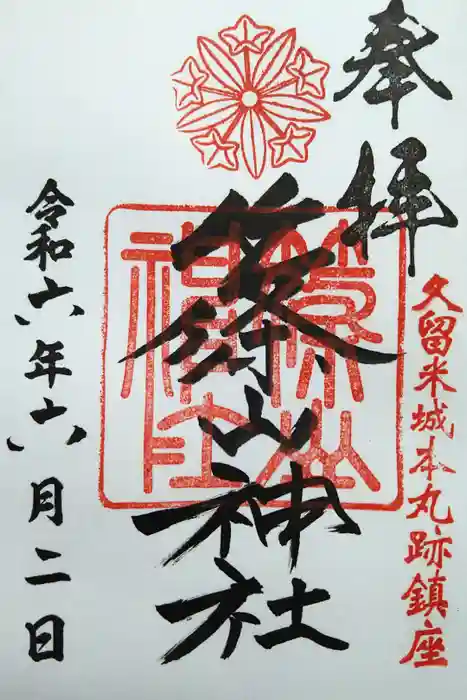 奉拝
久留米城本丸跡鎮座
篠山神社
篠山神社
令和六年六月二日